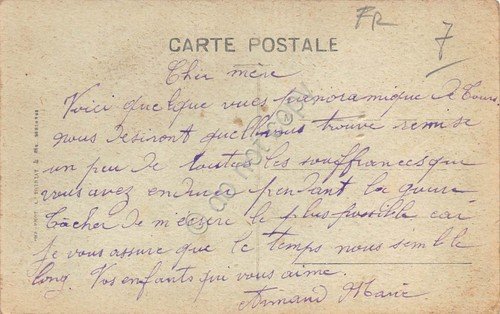 FR
7
CARTE POSTALE
Cher mère
Voici quelque vues panoramique de Tours
nous désiront quelle vous trouve remise
un peu de toutes les souffrances que
vous avez endurer pendant la
tâcher de m'écrire le plus possible car
je vous assure que le temps nous semble
long. Vos enfants qui vous aime.
Armand Marie